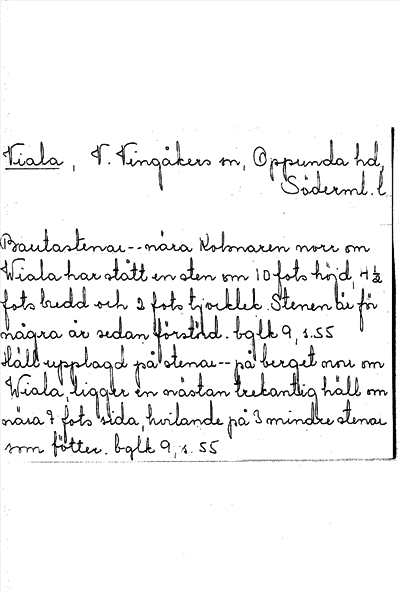 Viala, V. Vingåkers sn, Oppunda hd,
Söderml. l.
Bautastenar -- nära Kolsnaren norr om
Wiala har stått en sten om 10 fots höjd, 4 ½
fots bredd och 2 fots tjocklek. Stenen är för
några år sedan förstörd. bglk 9, s. 55
Häll upplagd på stenar -- på berget norr om
Wiala, ligger en nästan trekantig häll om
nära 7 fots sida, hvilande på 3 mindre stenar
som fötter. bglk 9, s. 55